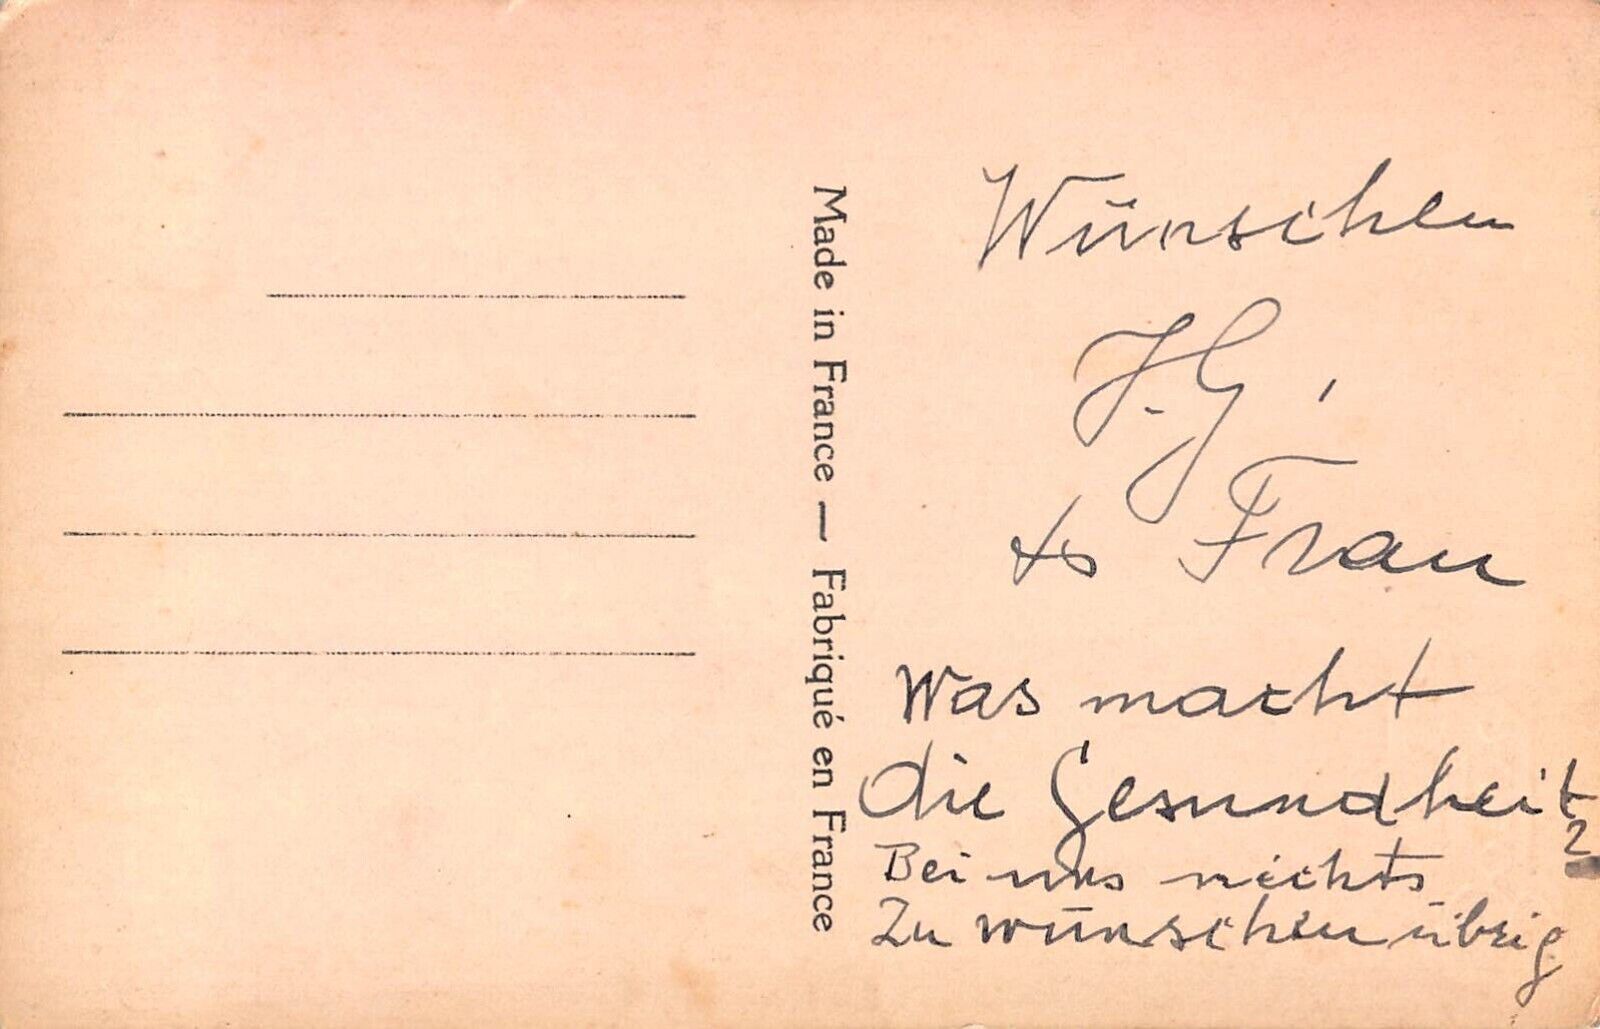 Made in France — Fabriqué en France
Wünschen
J. G.
Frau
Was macht
die Gesundheit ?
Bei uns nichts
Zu wünschen übrig